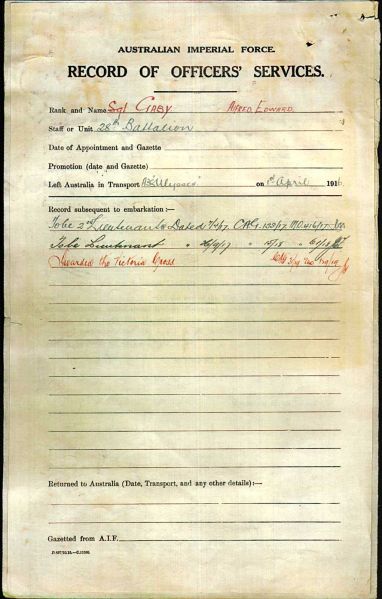 AUSTRALIAN IMPERIAL FORCE.
RECORD OF OFFICERS' SERVICES.
Rank and Name Sgt GABY ALFRED EDWARD.
Staff or Unit 28th Battalion
Date of Appointment and Gazette
Promotion (date and Gazette)
Left Australia in Transport "Ulysses" on 1st April 1916
Record subsequent to embarkation:—
To be 2nd Lieutenant Dated 7/4/17. 133/17 M.O. 416/17
To be Lieutenant " 26/9/17 " 12/18 " 61/18
Awarded the Victoria Cross
Returned to Australia (Date, Transport, and any other details):—
Gazetted from A.I.F.